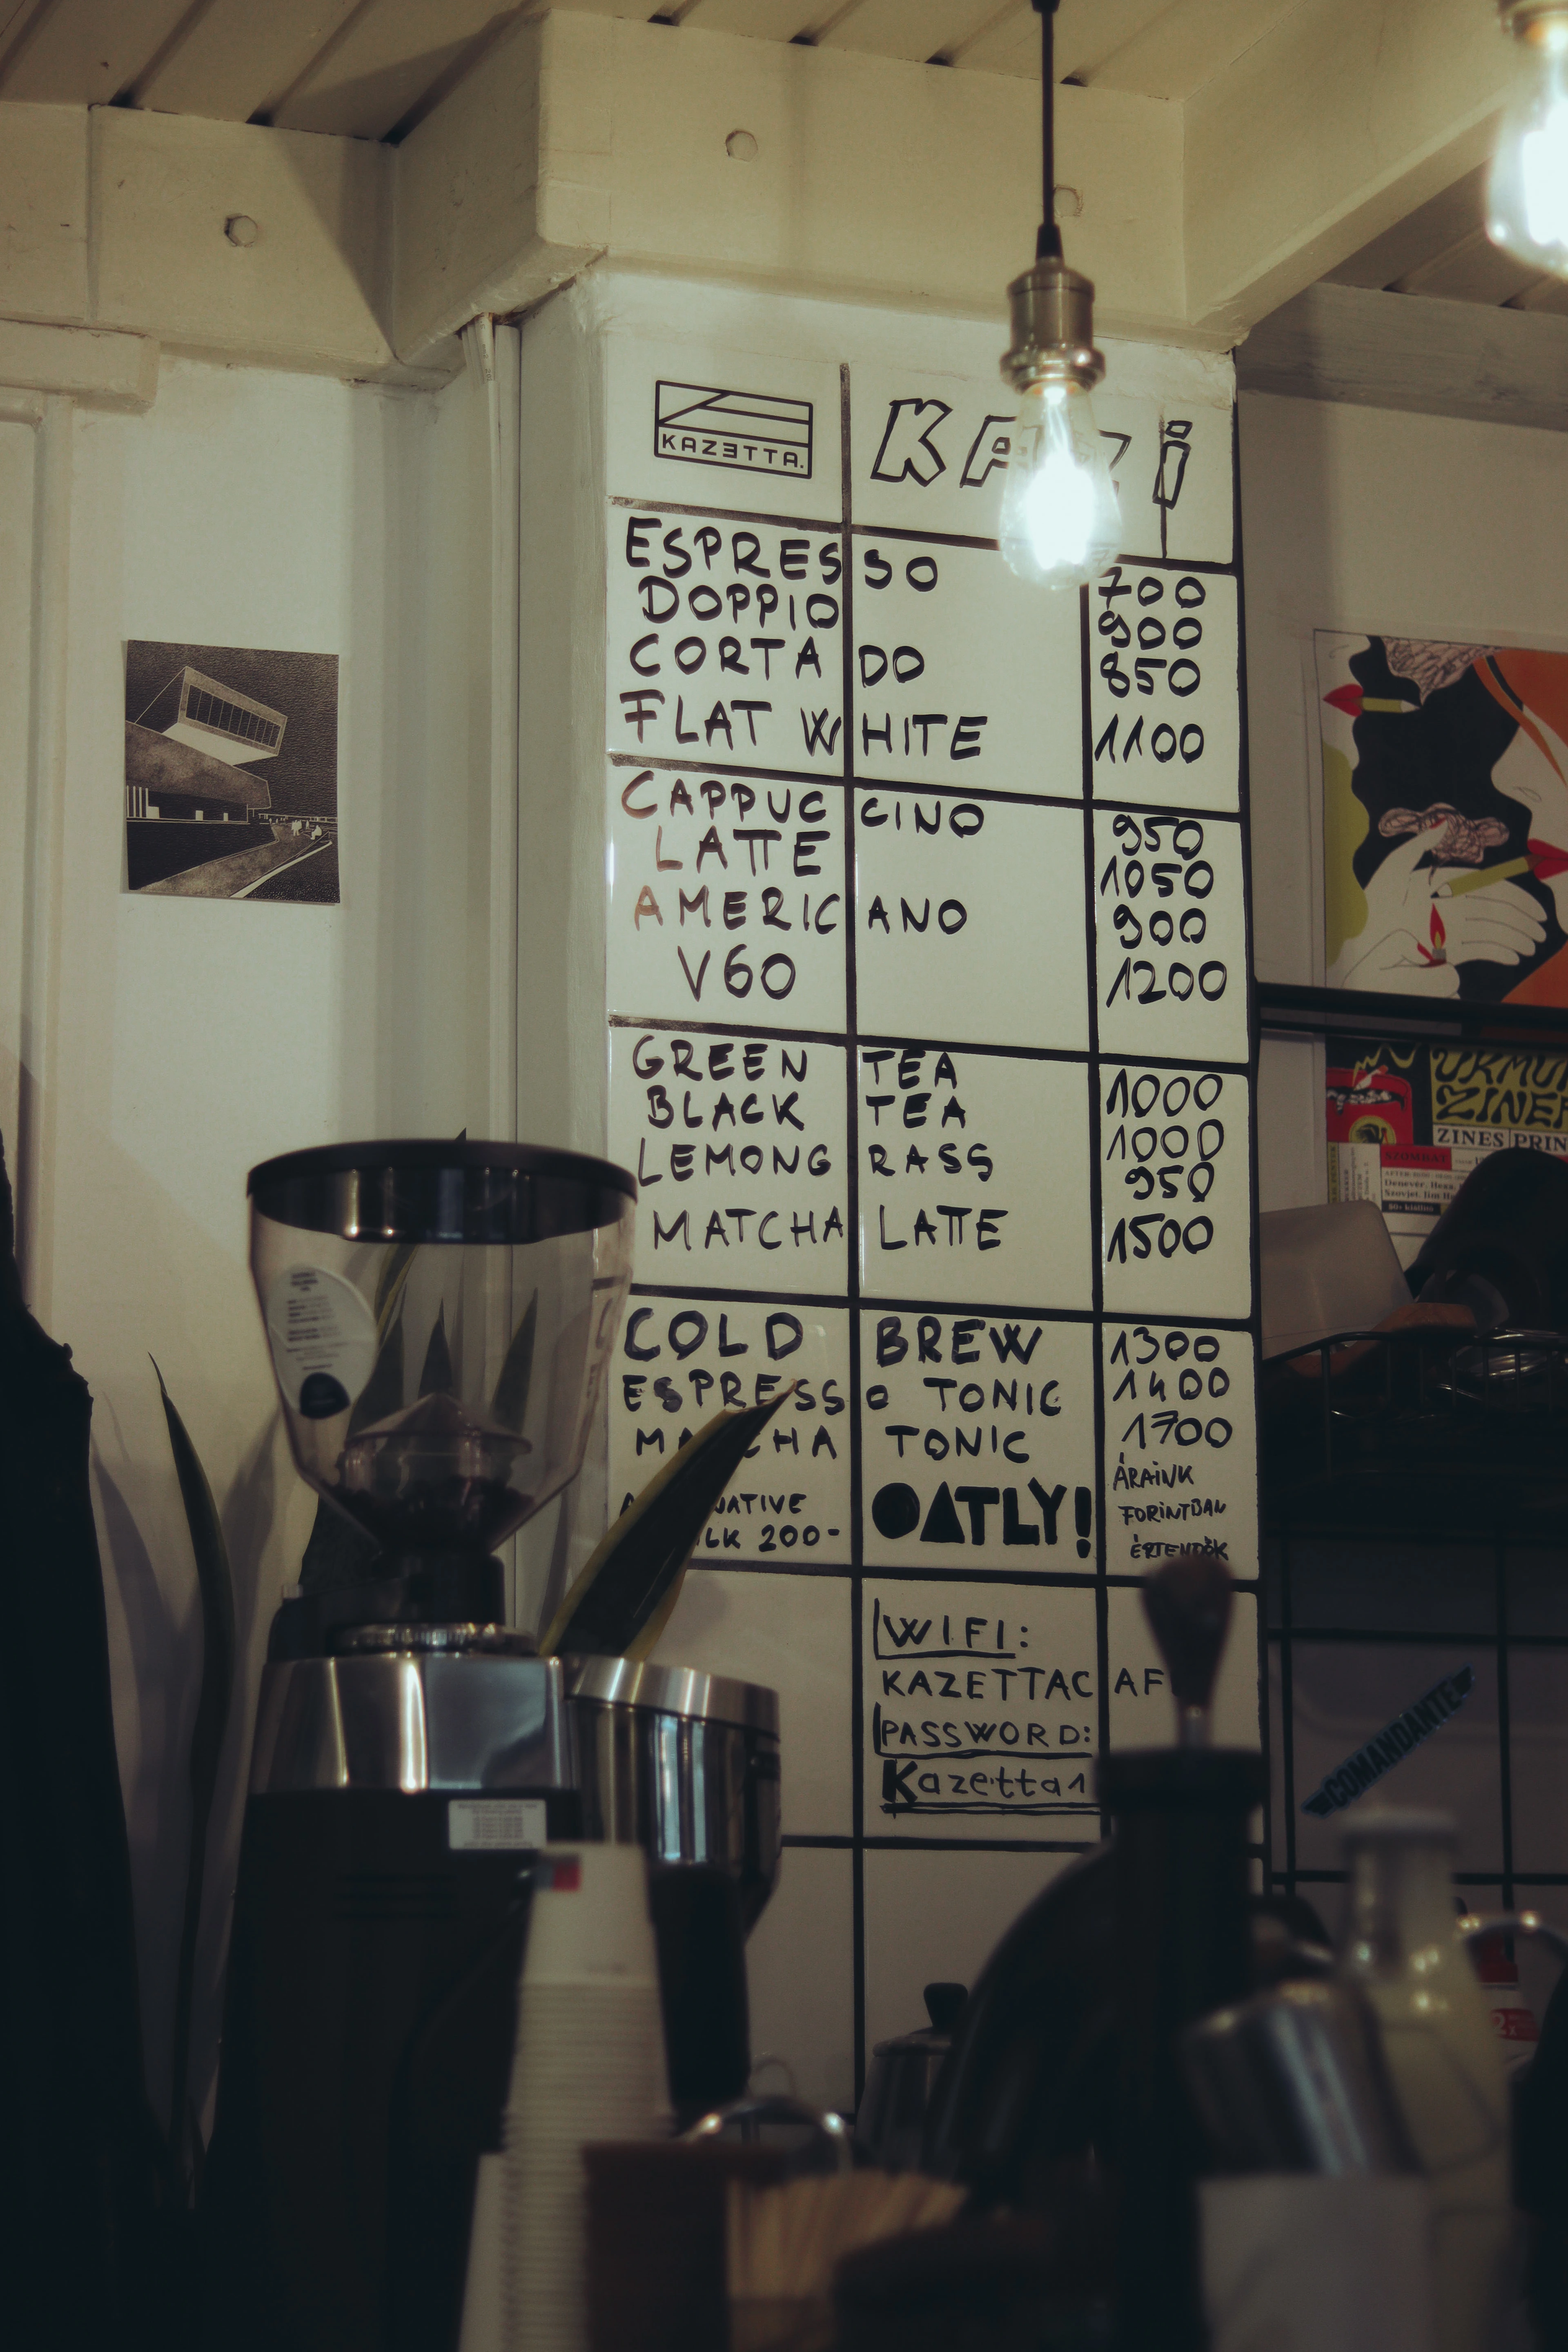 KAZETTA.
ESPRESSO 700
DOPPIO 900
CORTADO 850
FLAT WHITE 1100
CAPPUCCINO 950
LATTE 1050
AMERICANO 900
V60 1200
GREEN TEA 1000
BLACK TEA 1000
LEMONGRASS 950
MATCHA LATTE 1500
COLD BREW 1300
ESPRESSO TONIC 1400
MATCHA TONIC 1700
200-
OATLY!
ÁRAINK
FORINTBAN
ÉRTENDŐK
WIFI:
KAZETTACAF
PASSWORD:
Kazetta1
ZINES PRIN
SZOMBAT
COMANDANTE